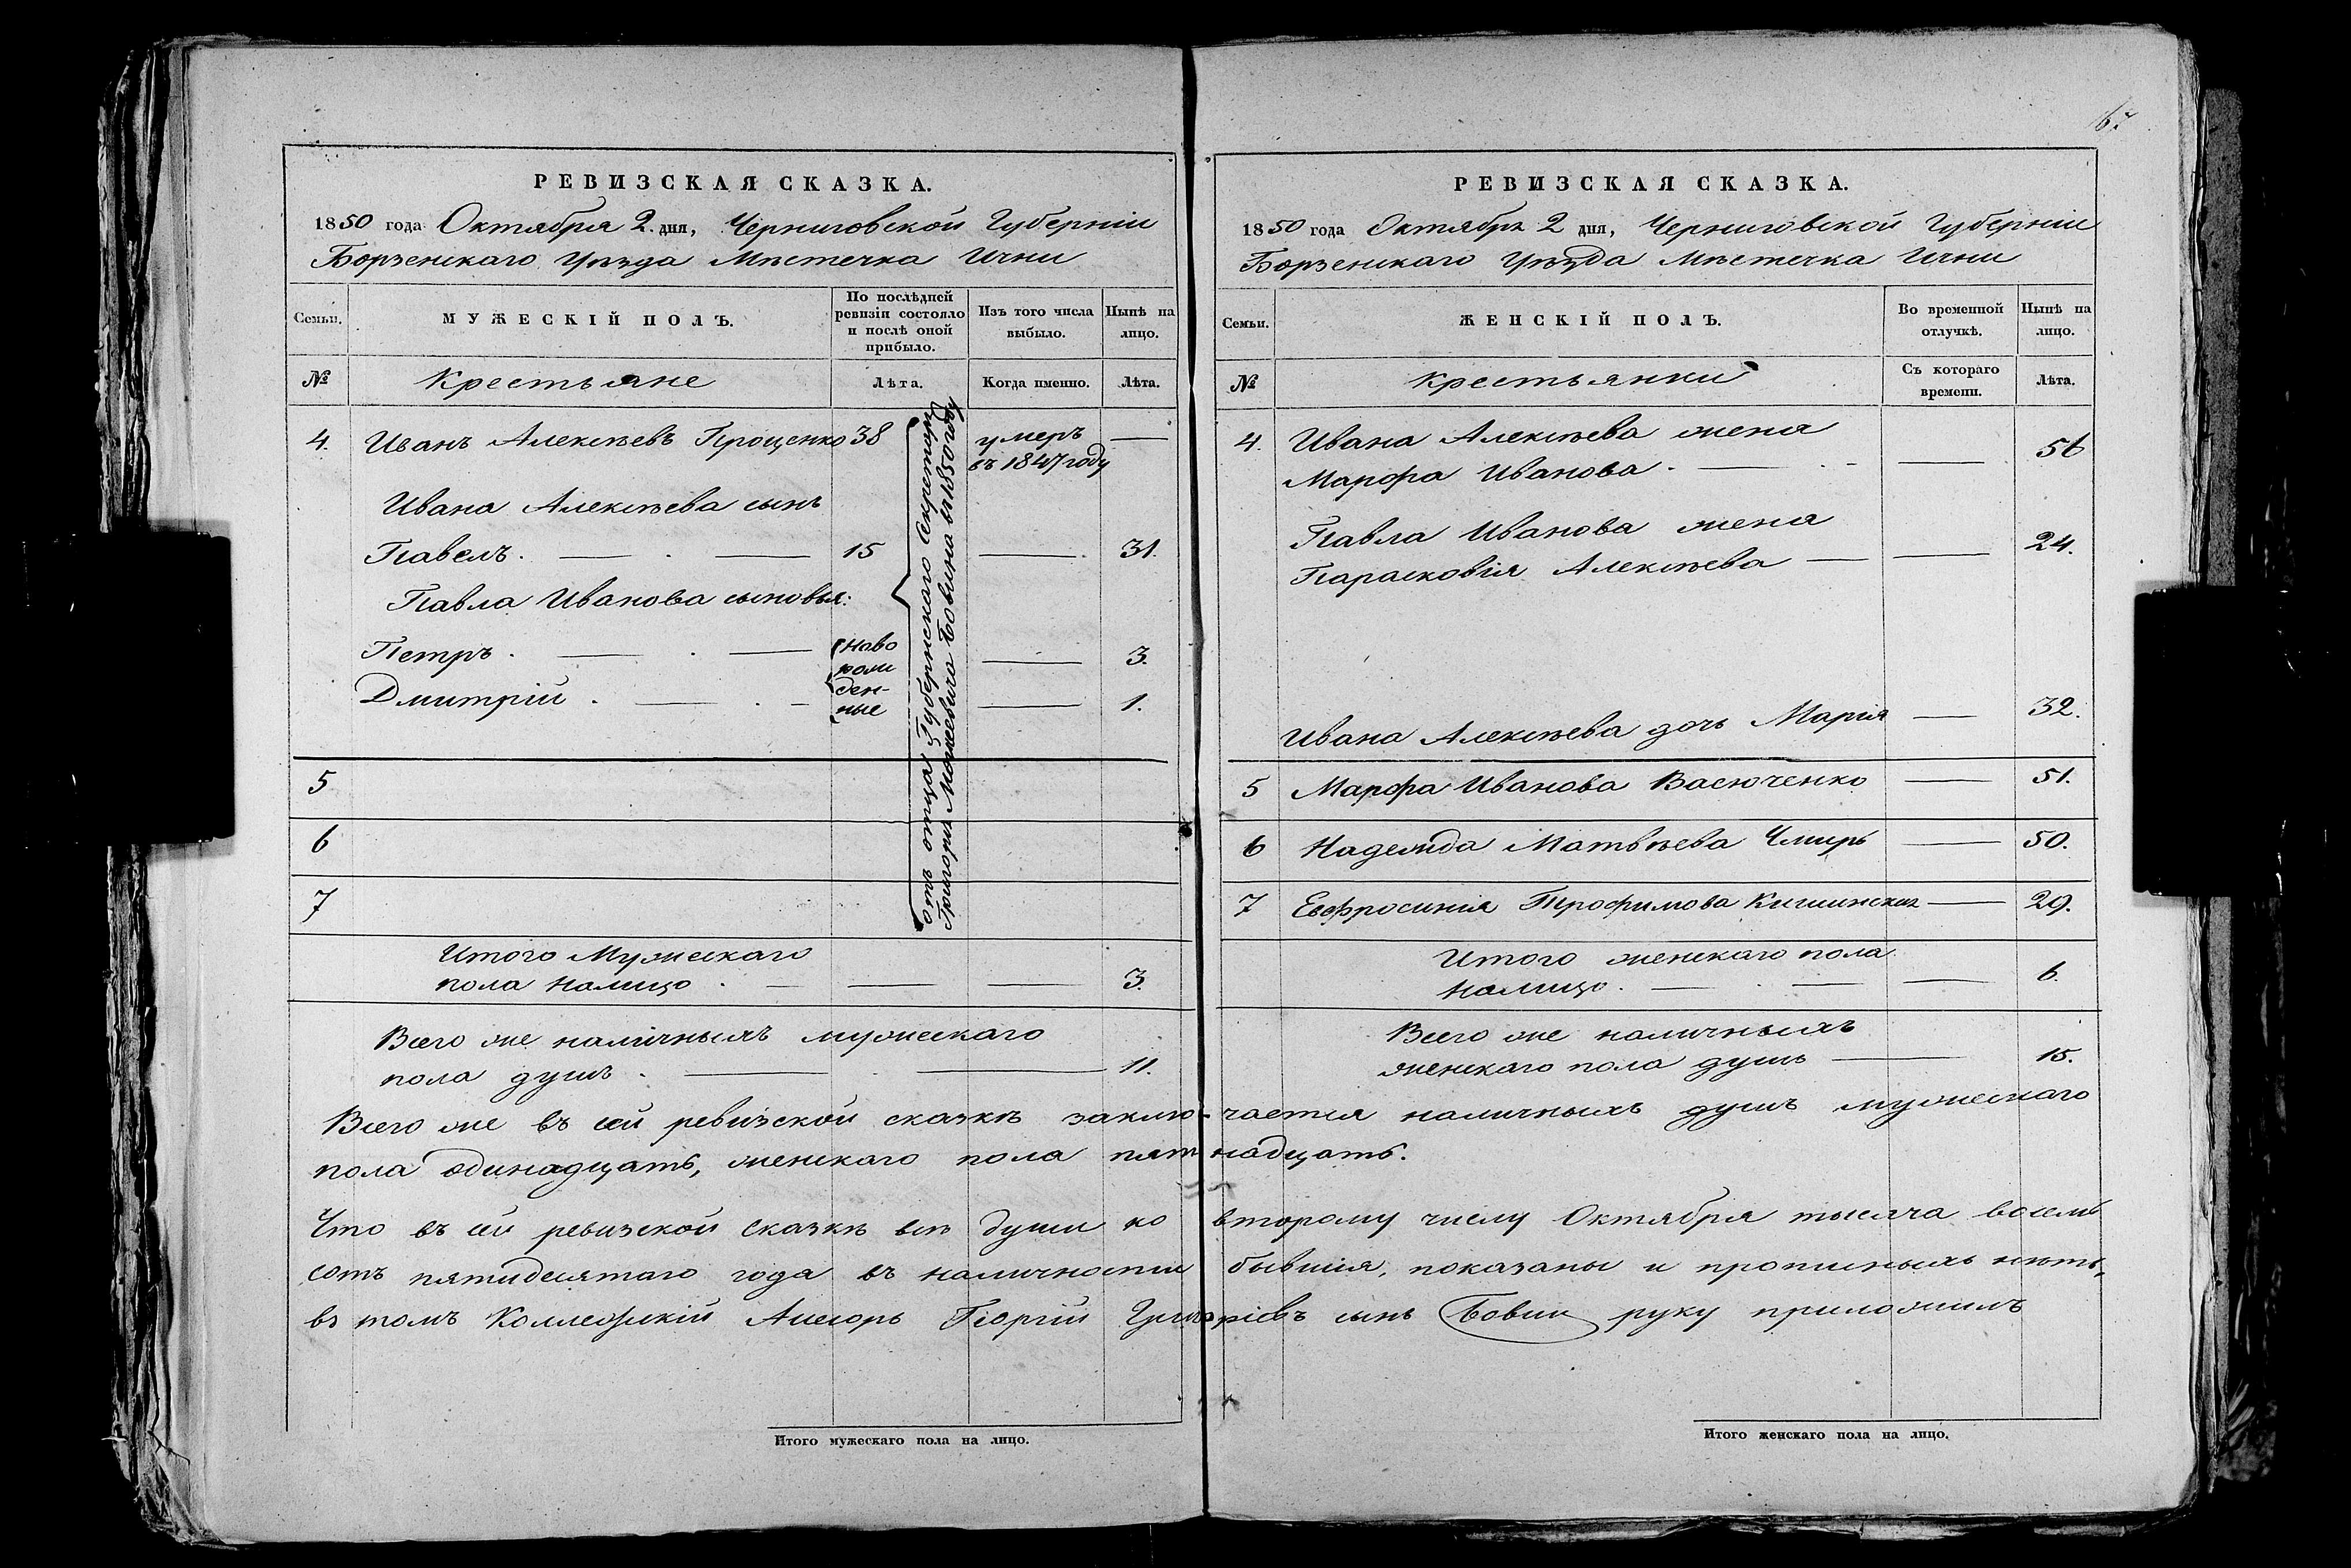 РЕВИЗСКАЯ СКАЗКА.
1850 года Октября 2. дня, Черниговской Губерніи
Борзенскаго Уѣзда Мѣстечка Ични
Семьи.
МУЖЕСКІЙ ПОЛЪ.
По послѣдней
ревизіи состояло
и послѣ оной
прибыло.
Изъ того числа
выбыло.
Нынѣ на
лицо.
№
Крестьяне
Лѣта.
Когда именно.
Лѣта.
4. Иванъ Алексѣевъ Проценко 38 умеръ —
въ 1847 году
Ивана Алексѣева сынъ
Павелъ. — . — 15 — . 31.
Павла Иванова сыновья:
Петръ . — . — Ново — 3.
рож
Дмитрій . — . — ден- — 1.
ные
отъ отца Губернскаго Секретаря
Григорія Мокѣевича Бовина въ 1850 году
5
6
7
Итого Мужескаго
пола налицо . — — — 3.
Всего же наличныхъ мужескаго
пола душъ . — . — 11.
Итого мужескаго пола на лицо.
67
РЕВИЗСКАЯ СКАЗКА.
1850 года Октября 2 дня, Черниговской Губерніи
Борзенскаго Уѣзда Мѣстечка Ични
Семьи.
ЖЕНСКІЙ ПОЛЪ.
Во временной
отлучкѣ.
Нынѣ на
лицо.
№
Крестьянки
Съ котораго
времени.
Лѣта.
4. Ивана Алексѣева жена
Марфа Иванова . — . - — 56
Павла Иванова жена
Парасковія Алексѣева — — 24.
Ивана Алексѣева дочь Марія — 32.
5 Марфа Иванова Васюченко — 51.
6 Надежда Матвѣева Чмирь — 50.
7 Евфросинія Трофимова Кишинская — 29.
Итого женскаго пола
налицо . — . — — 6.
Всего же наличныхъ
женскаго пола душъ — 15.
Всего же въ сей ревизской сказкѣ заклю-чается наличныхъ душъ мужескаго
пола одинадцать, женскаго пола пятнадцать.
Что въ сей ревизской сказкѣ всѣ души ко второму числу Октября тысяча восемь
сотъ пятидесятаго года въ наличности бывшія, показаны и прописныхъ нѣтъ,
въ томъ Коллежскій Асесоръ Георгій Григоріевъ сынъ Бовин руку приложилъ
Итого женскаго пола на лицо.